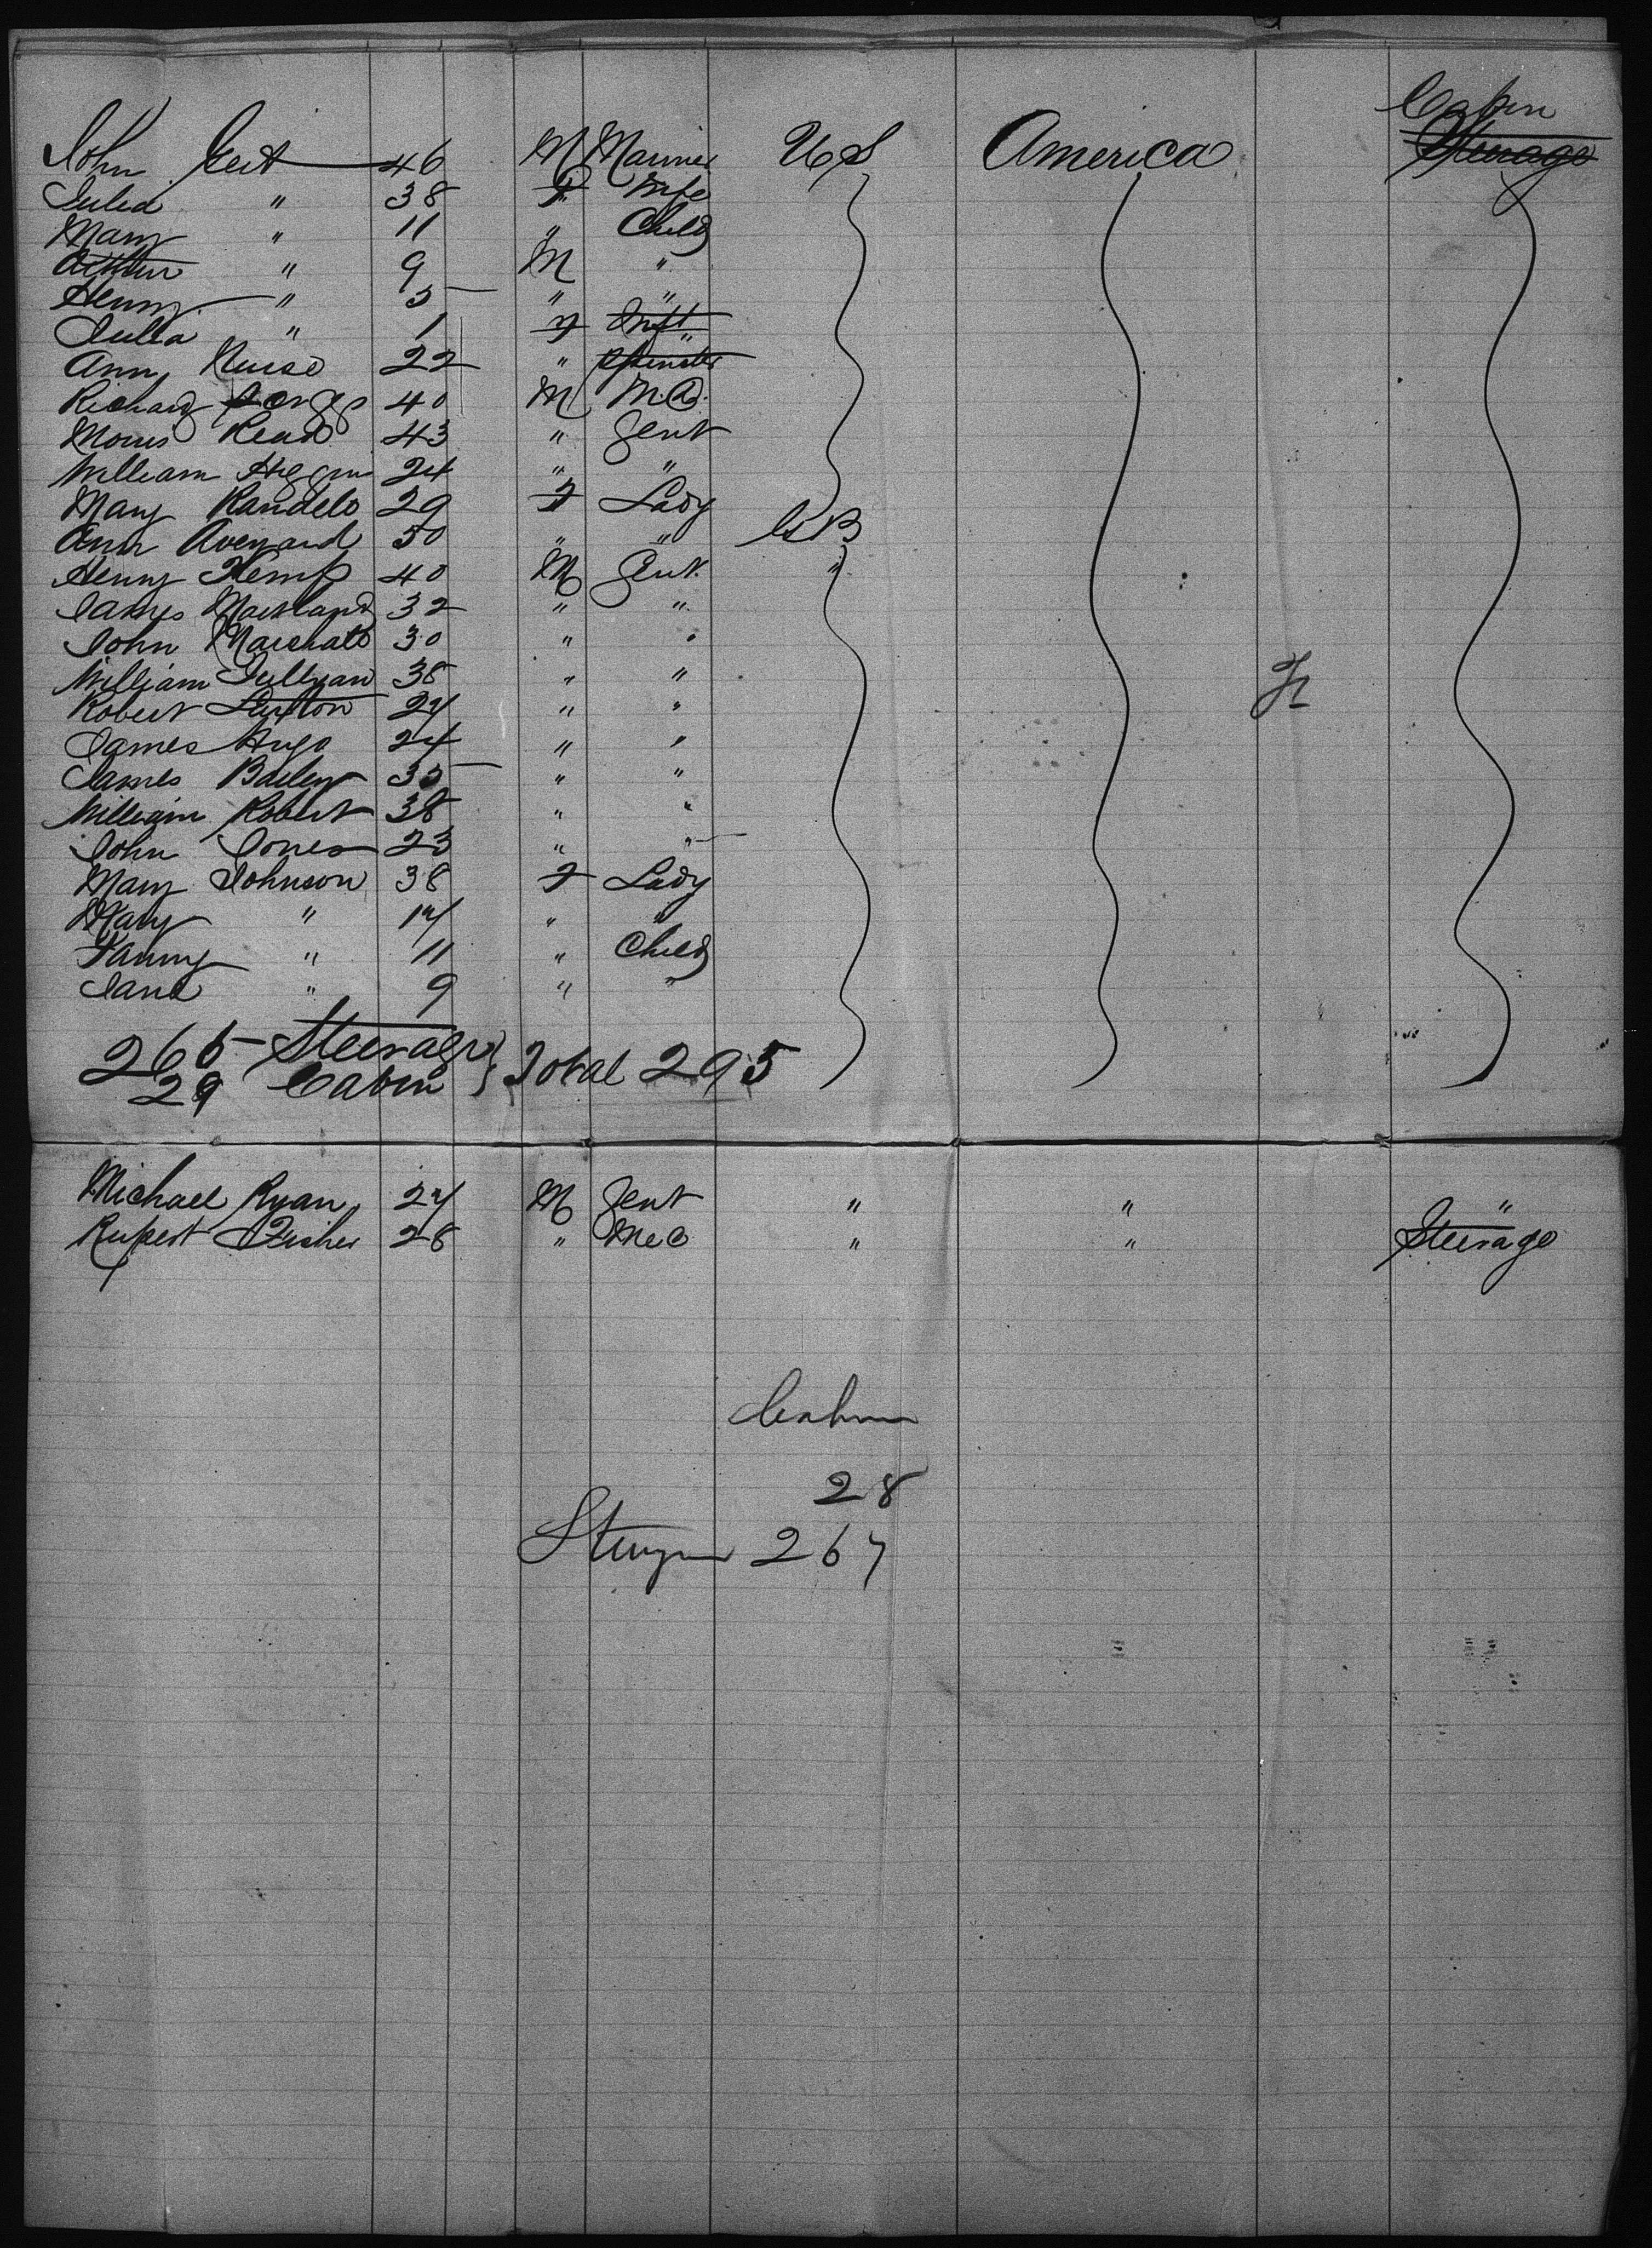 Cabin
John 46 M Mariner U S America Steerage
Julia " 38 F Wife
Mary " 11 " Child
Arthur " 9 M "
Henry " 5 " "
Julia " 1 F Inft
Ann Nurse 22 " Spinster
Richard 40 M M.D.
Morris Read 43 " Gent
William 24 " "
Mary Randell 29 F Lady
Ann Aveyard 50 " " G B
Henry Kemp 40 M Gent. "
James Markland 32 " "
John Marshall 30 " "
William Sullivan 38 " "
Robert Luxton 24 " "
James Hugo 24 " "
James Bailey 35 " "
William Robert 38 " "
John Jones 23 " "
Mary Johnson 38 F Lady
Mary " 14 " "
Fanny " 11 " Child
Jane " 9 " "
266 Steerage } Total 295
29 Cabin
Michael Ryan 24 M Gent " " "
Rupert Fisher 28 " Mec " " Steerage
Cabin
28
267